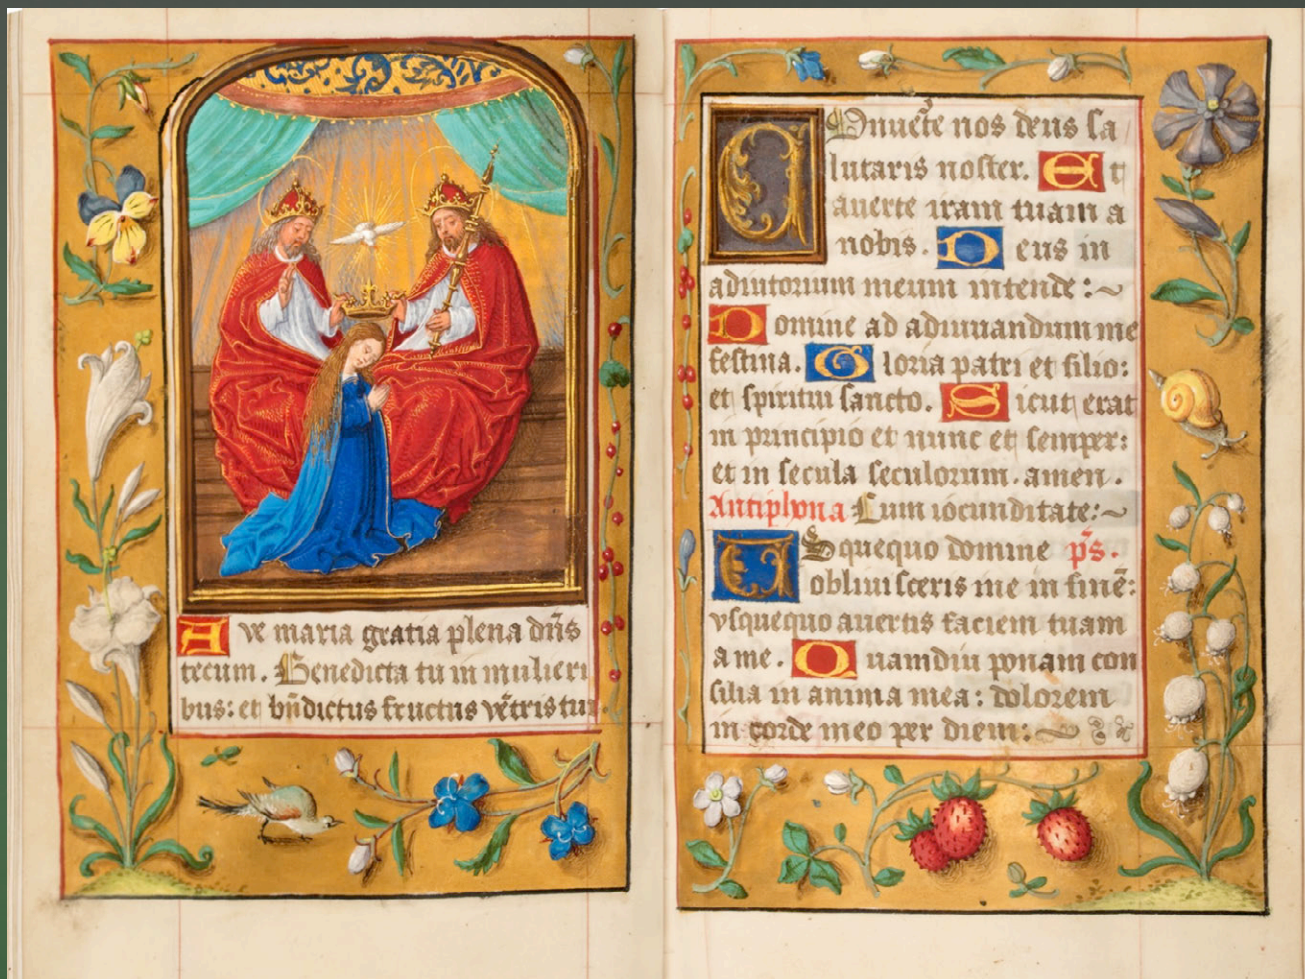 Ave maria gratia plena dñs
tecum. Benedicta tu in mulieri
bus: et bñdictus fructus vẽtris tui.
Conuerte nos deus sa
lutaris noster. Et
auerte iram tuam a
nobis. Deus in
adiutorium meum intende:~
Domine ad adiuuandum me
festina. Gloria patri et filio:
et spiritui sancto. Sicut erat
in principio et nunc et semper:
et in secula seculorum. amen.
Antiphona Cum iocunditate:~
Usquequo domine p̃s.
obliuisceris me in finẽ:
vsquequo auertis faciem tuam
a me. Quamdiu ponam con
silia in anima mea: dolorem
in corde meo per diem:~